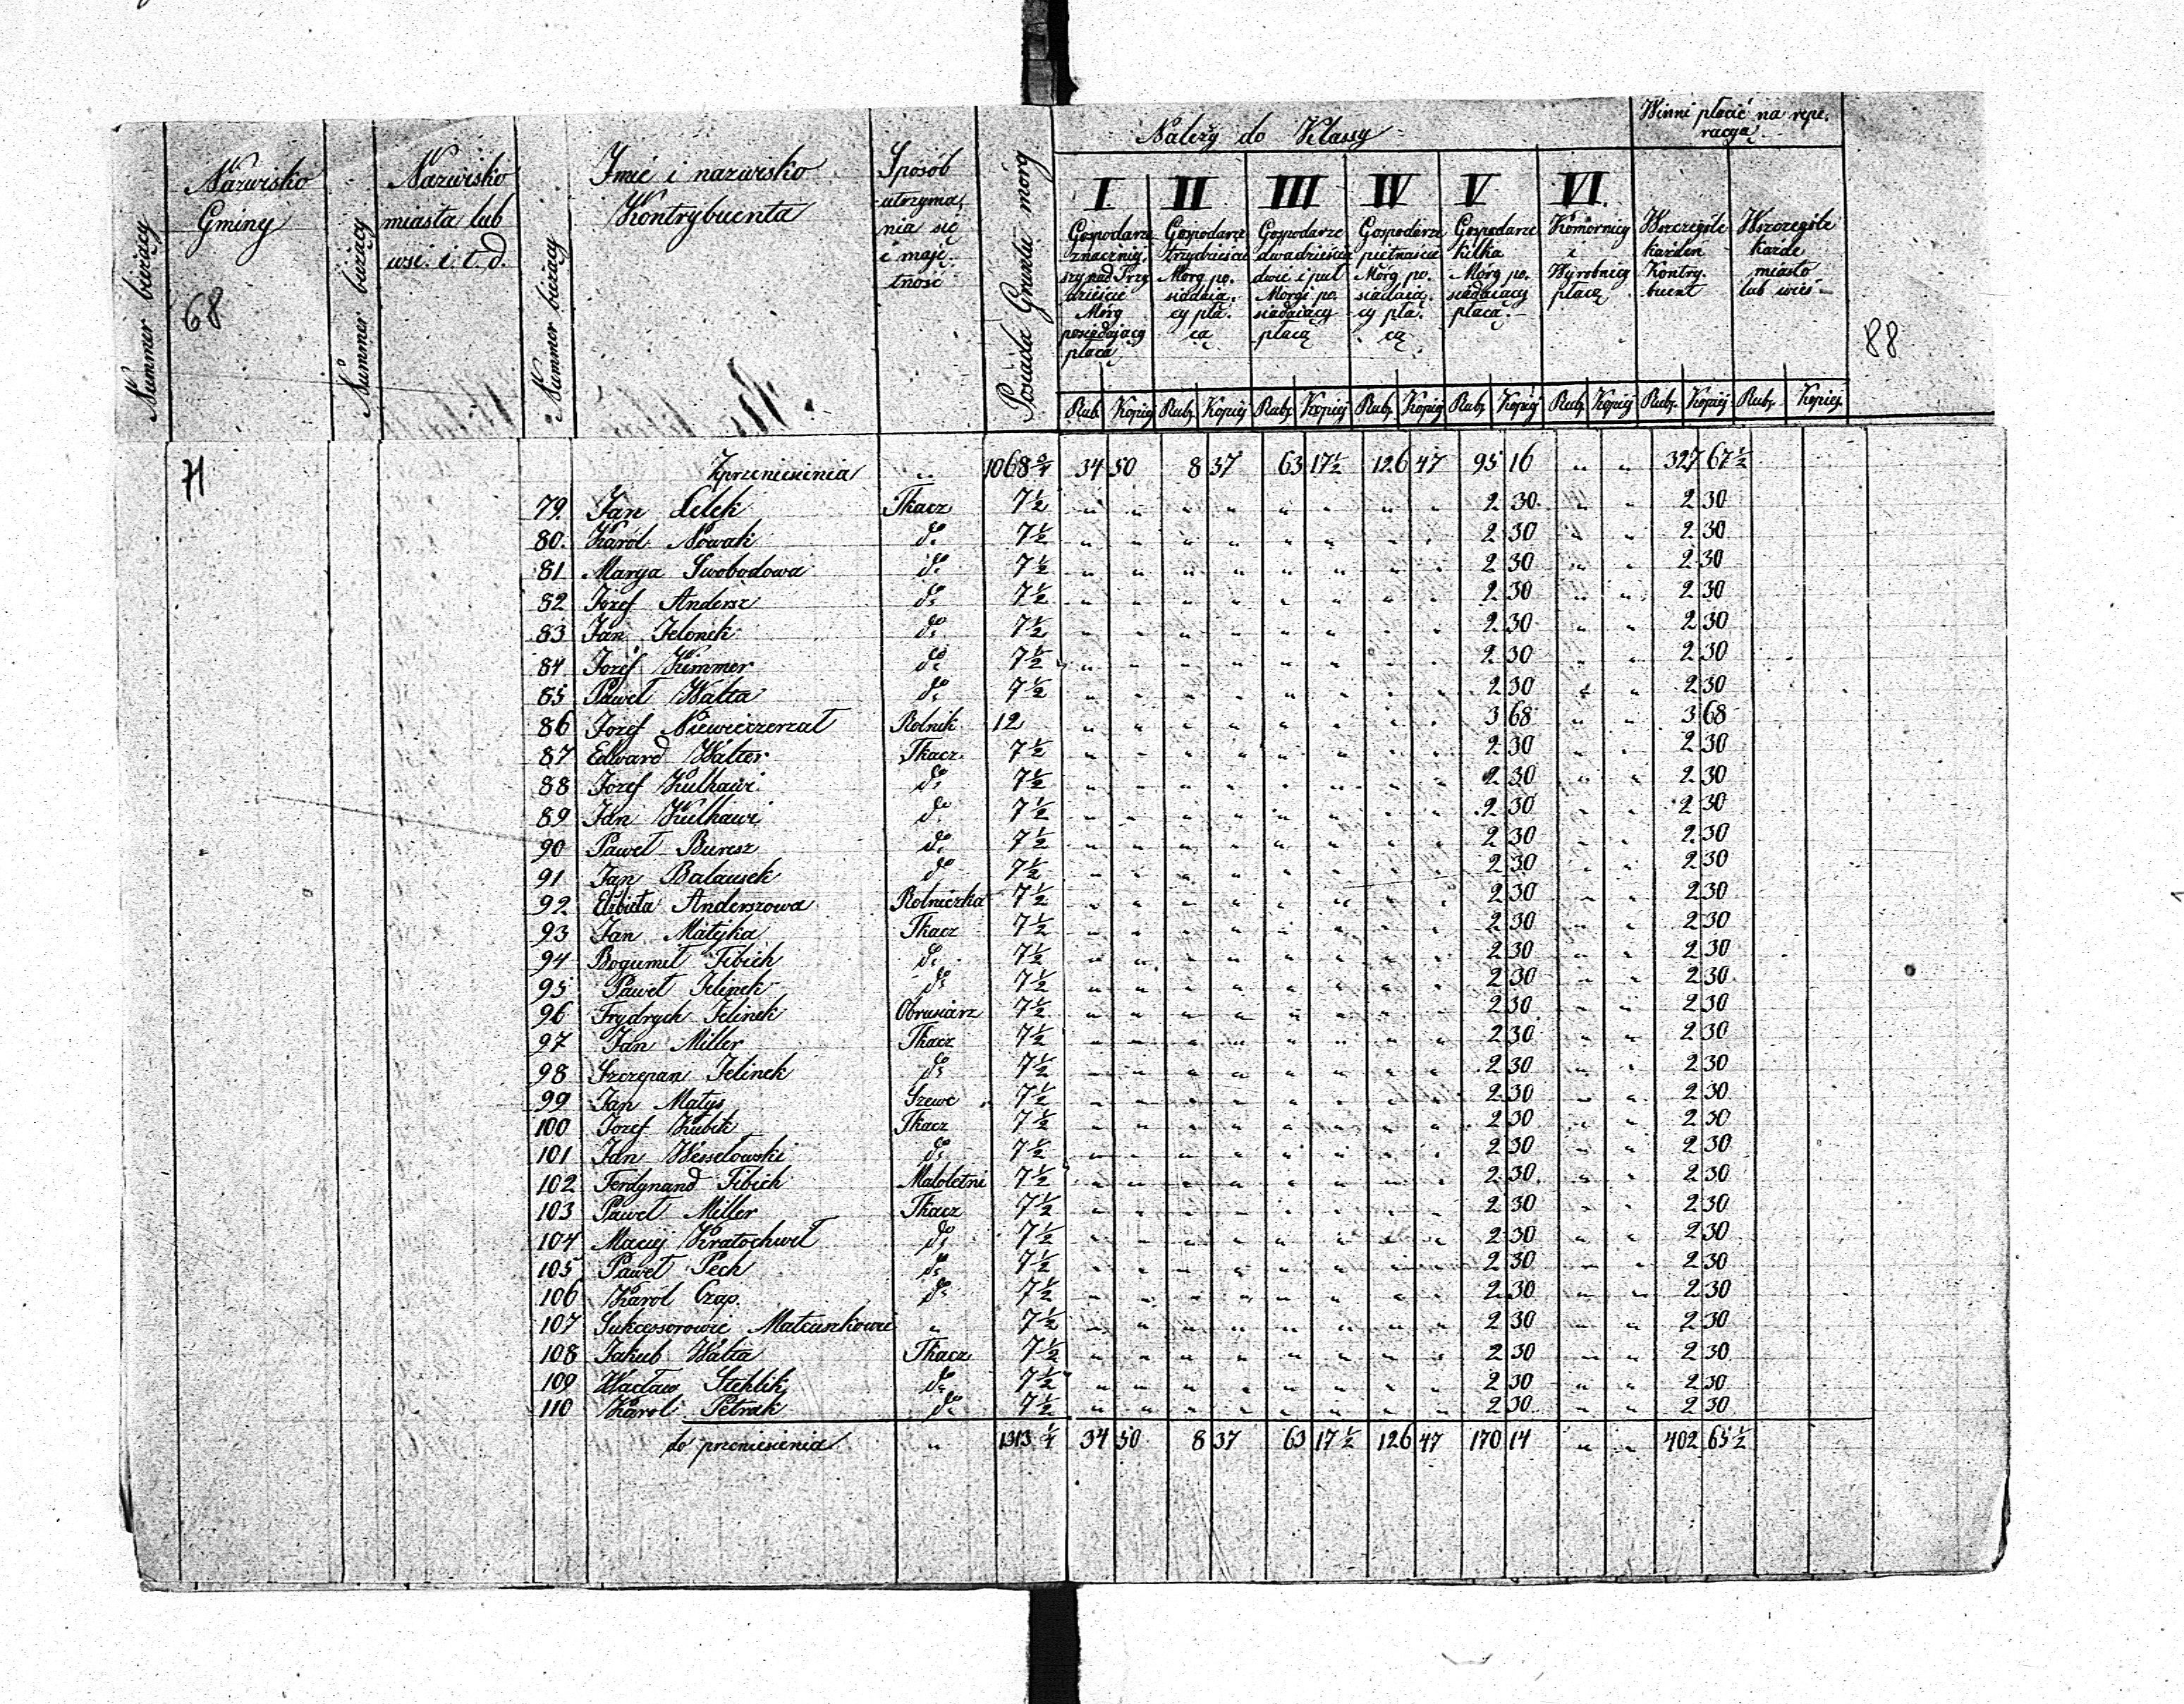 Nummer bieżący
Nazwisko Gminy
68
Nummer bieżący
Nazwisko miasta lub wsi. i. t. d.
Nummer bieżący
Imie i nazwisko Kontrybuenta
Sposób utrzyma, nia się i maję. tność
Posiada Gruntu morg
Należy do Klassy
I. Gospodarze znaczniej, szy nad Trzy dzieście Mórg posiadający płacą
II Gospodarze trzydzieści Mórg po. siadają, cy pła. cą
III Gospodarze dwadzieścia dwie i puł Morgi po siadaiący płacą
IV Gospodarze pietnaście Mórg po. siadaią. cy pła. cą
V Gospodarze kilka Mórg po. siadaiący płacą.
VI. Komornicy i Wyrobnicy płacą
Winni płacić na repe. racyą
Wszczególe każden Kontry. buent
Wszczególe każde miasto lub wieś
Rub. Kopiej Rub. Kopiej Rub. Kopiej Rub. Kopiej Rub. Kopiej Rub. Kopiej Rub. Kopiej Rub. Kopiej
88
71
Zprzeniesienia " 1068 3/4 34 50 8 37 63 17 1/2 126 47 95 16 " " 327 67 1/2
79. Jan Lelek Tkacz 7 1/2 2 30 2 30
80. Karól Nowak do 7 1/2 2 30 2 30
81 Marya Swobodowa do 7 1/2 2 30 2 30
82 Józef Andersz do 7 1/2 2 30 2 30
83 Jan Jelonek do 7 1/2 2 30 2 30
84 Jozef Kimmer do 7 1/2 2 30 2 30
85 Paweł Walta do 7 1/2 2 30 2 30
86 Jozef Niewieczerzał Rolnik 12 3 68 3 68
87 Edward Walter Tkacz 7 1/2 2 30 2 30
88 Jozef Kulhawi do 7 1/2 2 30 2 30
89 Jan Kulhawi do 7 1/2 2 30 2 30
90 Paweł Buresz do 7 1/2 2 30 2 30
91 Jan Balausek do 7 1/2 2 30 2 30
92 Elżbieta Anderszowa Rolniczka 7 1/2 2 30 2 30
93 Jan Matejka Tkacz 7 1/2 2 30 2 30
94 Bogumił Fibich do 7 1/2 2 30 2 30
95 Paweł Jelinek do 7 1/2 2 30 2 30
96 Frydrych Jelinek Obrusiarz 7 1/2 2 30 2 30
97 Jan Miller Tkacz 7 1/2 2 30 2 30
98 Szczepan Jelinek do 7 1/2 2 30 2 30
99 Jan Matys Szewc 7 1/2 2 30 2 30
100 Jozef Kubik Tkacz 7 1/2 2 30 2 30
101 Jan Wessełowski do 7 1/2 2 30 2 30
102 Ferdynand Fibich Małoletni 7 1/2 2 30 2 30
103 Paweł Miller Tkacz 7 1/2 2 30 2 30
104 Maciej Kratochwił do 7 1/2 2 30 2 30
105 Paweł Pech do 7 1/2 2 30 2 30
106 Karól Czap. do 7 1/2 2 30 2 30
107 Sukcessorowie Matauskowie " 7 1/2 2 30 2 30
108 Jakub Walta Tkacz 7 1/2 2 30 2 30
109 Wacław Stehlik do 7 1/2 2 30 2 30
110 Karol Petrak do 7 1/2 2 30 2 30
do przeniesienia " 1313 1/4 34 50 8 37 63 17 1/2 126 47 170 14 " " 402 65 1/2